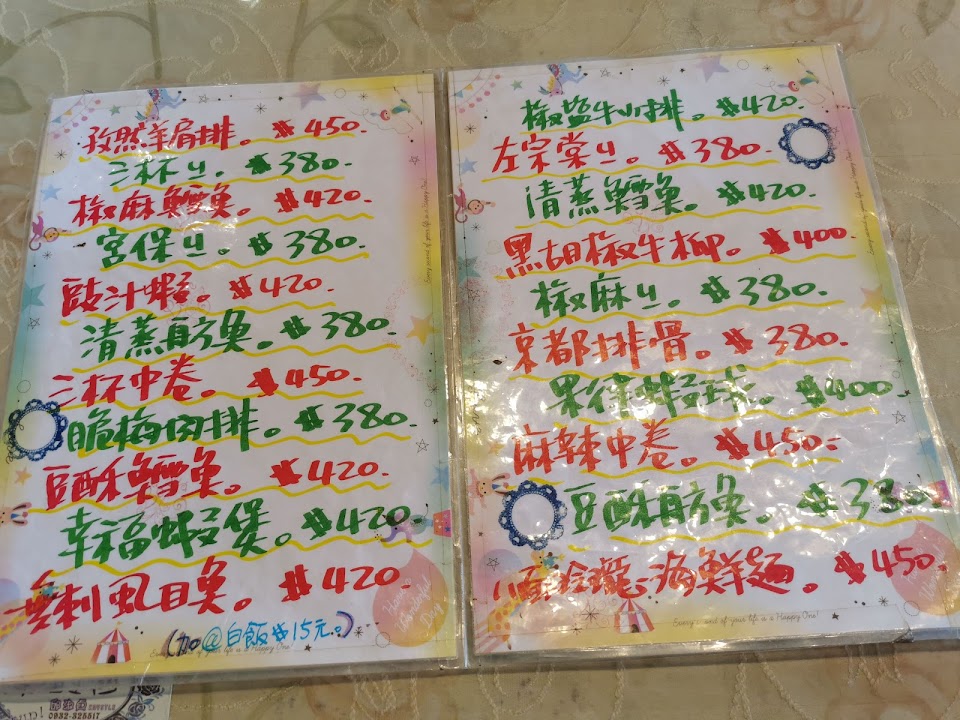 孜然羊肩排。$450.
三杯ㄐ。$380.
椒麻鱈魚。$420.
宮保ㄐ。$380.
豉汁蝦。$420.
清蒸魴魚。$380.
三杯中卷。$450.
脆梅肉排。$380.
豆酥鱈魚。$420.
幸福蝦煲。$420.
無刺虱目魚。$420.
(加@白飯$15元。)
椒鹽牛小排。$420.
左宗棠ㄐ。$380.
清蒸鱈魚。$420.
黑胡椒牛柳。$400
椒麻ㄐ。$380.
京都排骨。$380.
果律蝦球。$400
麻辣中卷。$450.
豆酥魴魚。$380.
八面玲瓏海鮮麵。$450
Every second of your life is a Happy One!
0932-325517